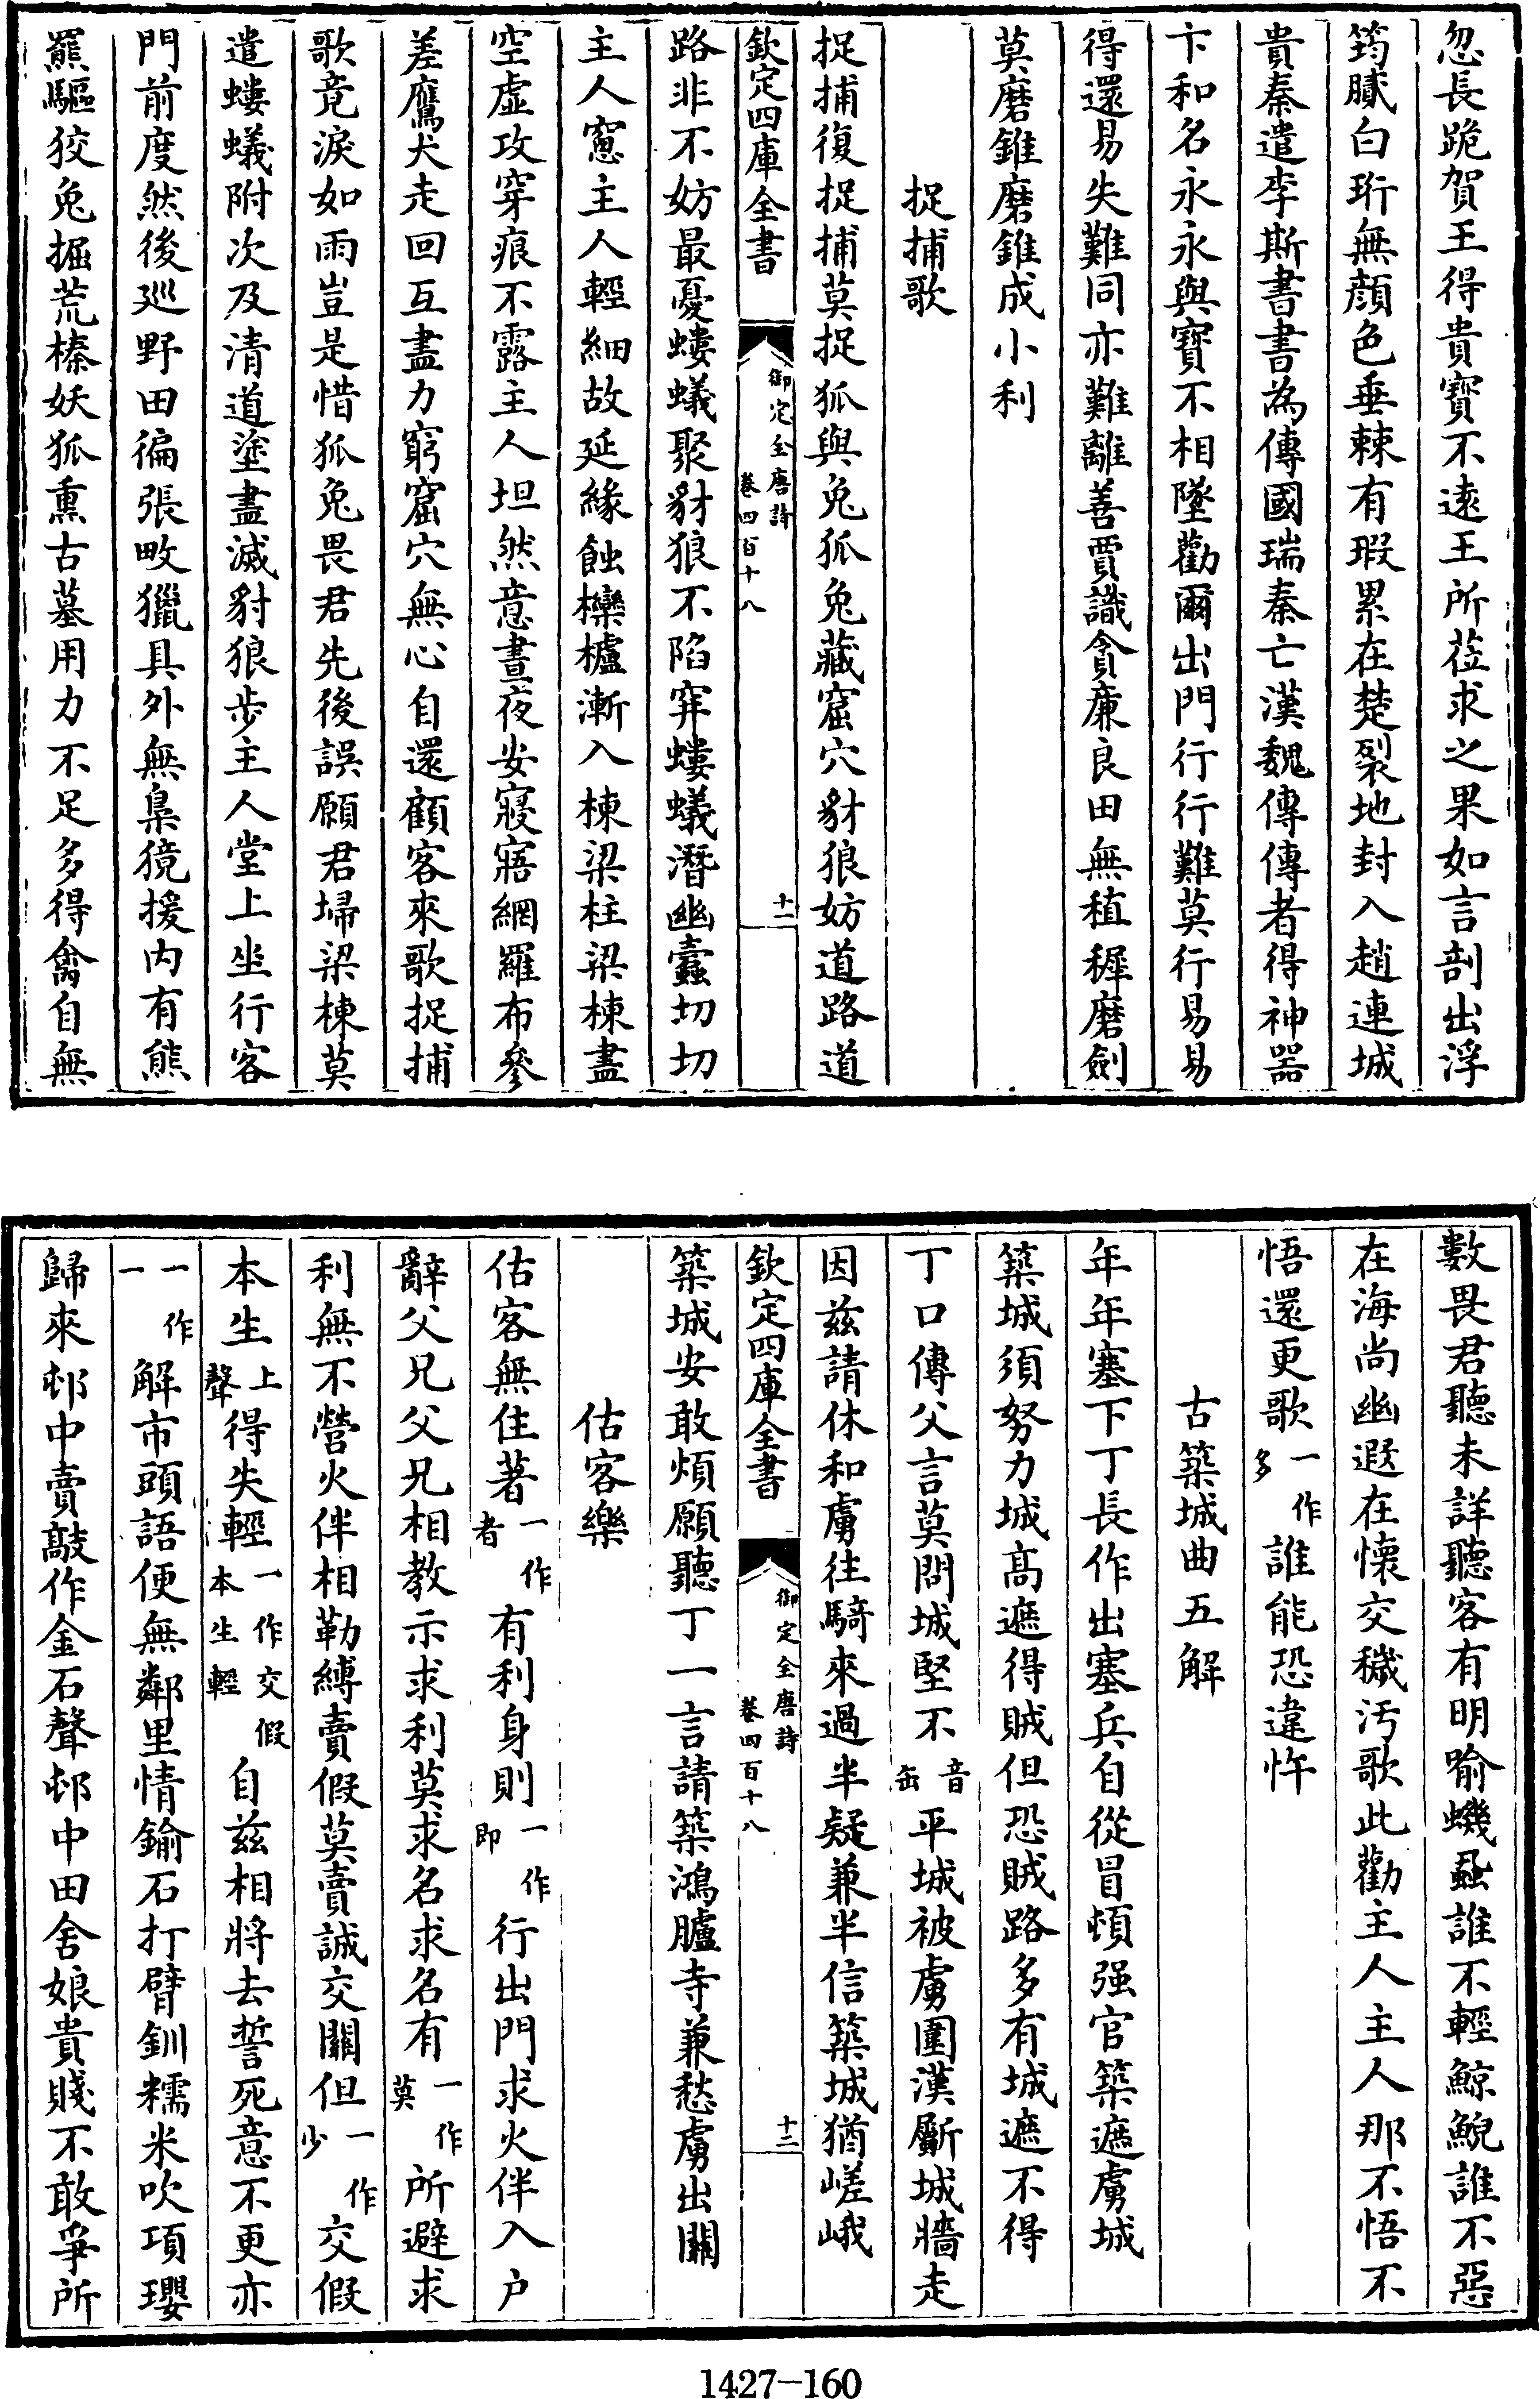 忽長跪賀王得貴寶不遠王所莅求之果如言剖出浮
筠膩白珩無顔色垂棘有瑕累在楚裂地封入趙連城
貴秦遣李斯書書為傳國瑞秦亡漢魏傳傳者得神器
卞和名永永與寶不相墜勸爾出門行行難莫行易易
得還易失難同亦難離善賈識貪廉良田無稙穉磨劍
莫磨錐磨錐成小利
捉捕歌
捉捕復捉捕莫捉狐與兔狐兔藏窟穴豺狼妨道路道
欽定四庫全書
御定全唐詩
卷四百十八
十一
路非不妨最憂螻蟻聚豺狼不陷穽螻蟻潛幽蠹切切
主人窻主人輕細故延緣蝕欒櫨漸入棟梁柱梁棟盡
空虛攻穿痕不露主人坦然意晝夜安寢寤網羅布參
差鷹犬走回互盡力窮窟穴無心自還顧客來歌捉捕
歌竟淚如雨豈是惜狐兔畏君先後誤願君埽梁棟莫
遣螻蟻附次及清道塗盡滅豺狼步主人堂上坐行客
門前度然後巡野田徧張畋獵具外無梟獍援内有熊
羆驅狡兔掘荒榛妖狐熏古墓用力不足多得禽自無
數畏君聽未詳聽客有明喻蟣蝨誰不輕鯨鯢誰不惡
在海尚幽遐在懷交穢汚歌此勸主人主人那不悟不
悟還更歌一作多誰能恐違忤
古築城曲五解
年年塞下丁長作出塞兵自從冒頓强官築遮虜城
築城須努力城高遮得賊但恐賊路多有城遮不得
丁口傳父言莫問城堅不音缶平城被虜圍漢斸城牆走
因兹請休和虜往騎來過半疑兼半信築城猶嵯峨
欽定四庫全書
御定全唐詩
卷四百十八
十二
築城安敢煩願聽丁一言請築鴻臚寺兼愁虜出關
估客樂
估客無住著一作者有利身則一作即行出門求火伴入户
辭父兄父兄相教示求利莫求名求名有一作莫所避求
利無不營火伴相勒縛賣假莫賣誠交關但一作少交假
本生上聲得失輕一作交假本生輕自兹相將去誓死意不更亦
一一作解市頭語便無鄰里情鍮石打臂釧糯米吹項瓔
歸來邨中賣敲作金石聲邨中田舍娘貴賤不敢爭所
1427-160